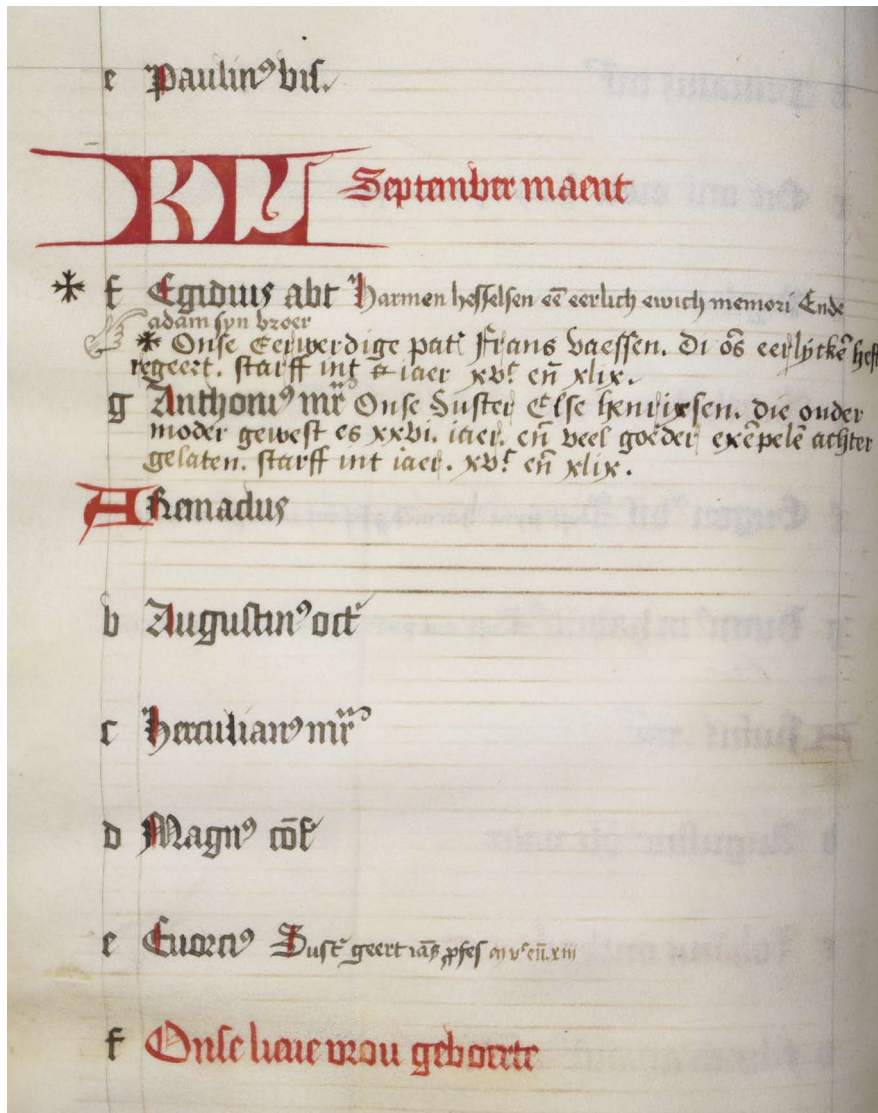 e Paulin⁹ bis.
KL September maent
f Egidius abt Harmen hesselsen eē eerlich ewich memori Ende
adam syn broer
Onse Eerwerdige pat Frans Vaessen. Di os̄ eerlycke heft
regeert. starff int iaer xvᶜ eñ xlix.
g Anthoni⁹ mr̄ Onse Suster Else henrixsen. die ouder
moder gewest es xxvi. iaer. eñ veel goeder exēpelē achter
gelaten. starff int iaer. xvᶜ eñ xlix.
A Remaclus
b Augustin⁹ oct
c Herculian⁹ mr̄
d Magn⁹ cōf
e Euorci⁹ Sust geert ꝓfes vᶜ eñ xiii
f Onse lieue vrou geboerte